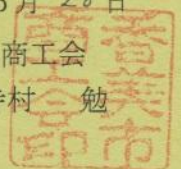 月 日
商工会
村 勉
香美市
商工会印